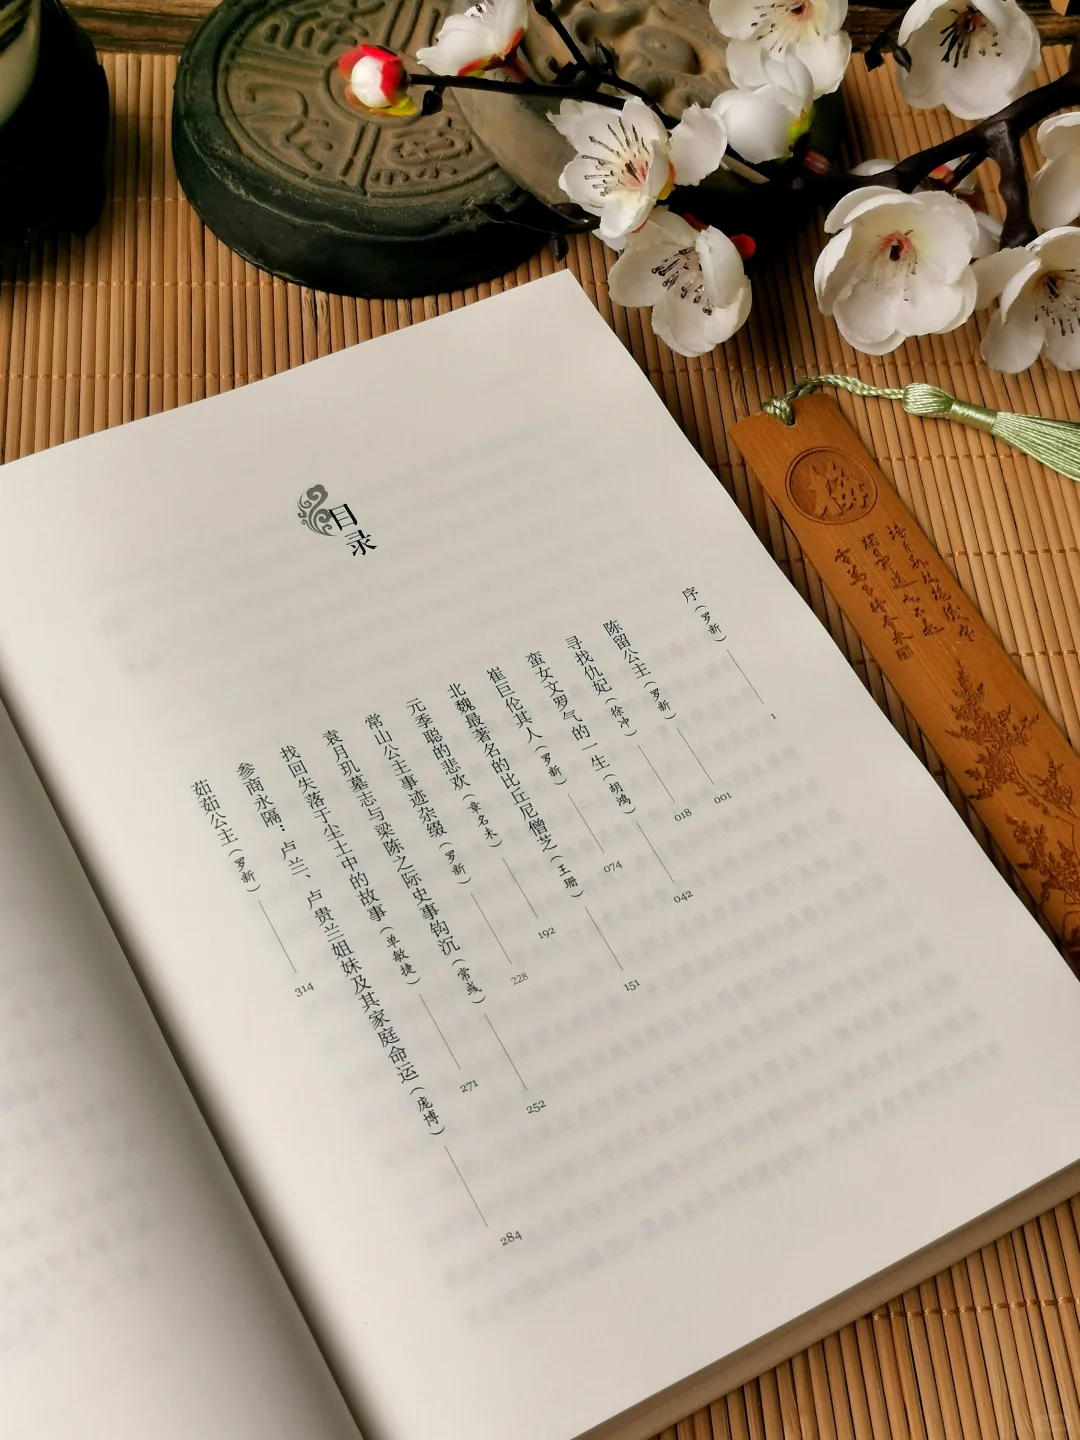 目录
序（罗新）——1
陈留公主（罗新）——001
寻找仇妃（徐冲）——018
蛮女文罗气的一生（胡鸿）——042
崔巨伦其人（罗新）——074
北魏最著名的比丘尼僧芝（王珊）——151
元季聪的悲欢（章名未）——192
常山公主事迹杂缀（罗新）——228
袁月玑墓志与梁陈之际史事钩沉（常彧）——252
找回失落于尘土中的故事（单敏捷）——271
参商永隔：卢兰、卢贵兰姐妹及其家庭命运（庞博）——284
茹茹公主（罗新）——314
梅